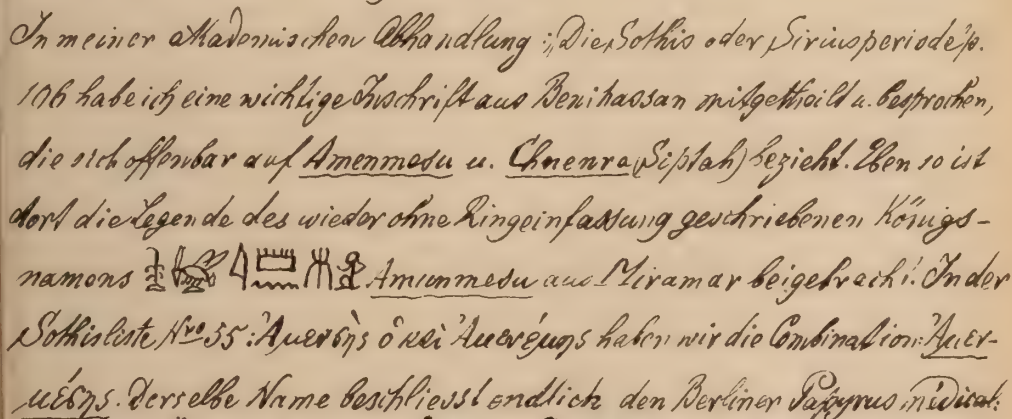 In meiner akademischen Abhandlung: „Die Sothis oder Siriusperiode" p.
106 habe ich eine wichtige Inschrift aus Benihassan mitgetheilt u. besprochen,
die sich offenbar auf Amenmesu u. Chnenra (Siptah) bezieht. Eben so ist
dort die Legende des wieder ohne Ringeinfassung geschriebenen Königs-
namens Amunmesu aus Miramar beigebracht. In der
Sothisliste Nro 35: ὁ καὶ haben wir die Combination:
Derselbe Name beschliesst endlich den Berliner Papyrus médical: